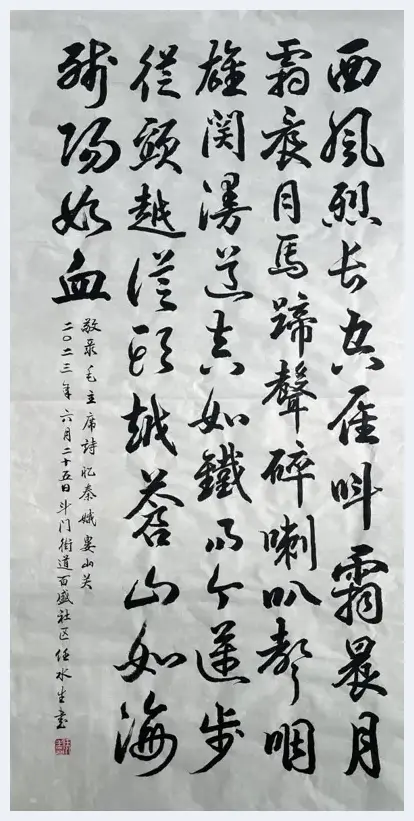 西風烈长空雁叫霜晨月
霜晨月馬蹄聲碎喇叭聲咽
雄関漫道真如鐵而今邁步
從頭越從頭越蒼山如海
殘陽如血
敬录毛主席詩忆秦娥娄山关
二〇二三年六月二十五日斗门街道百盛社区任水生書